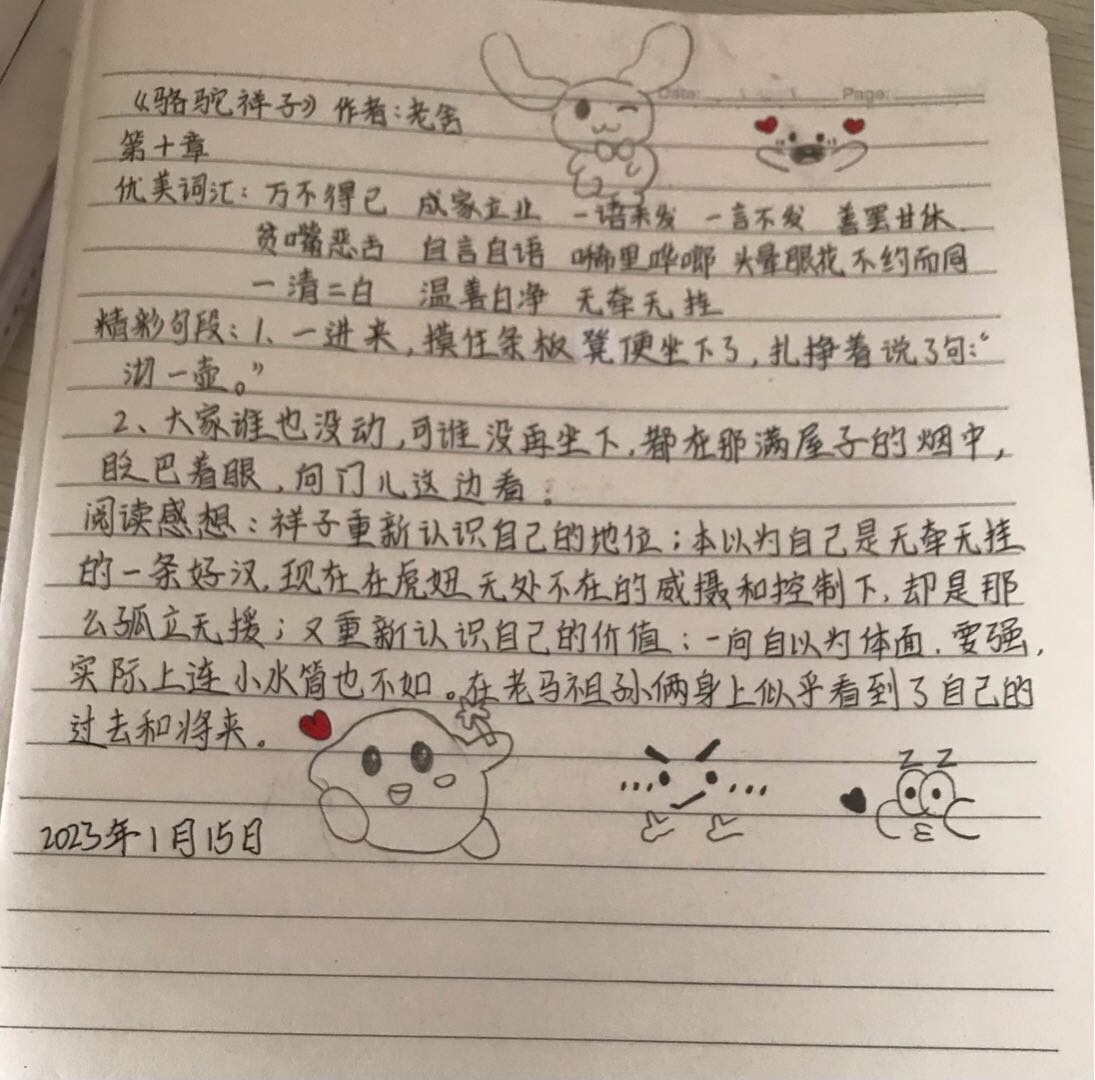 Date: Page:
《骆驼祥子》作者:老舍
第十章
优美词汇: 万不得已 成家立业 一语未发 一言不发 善罢甘休
贫嘴恶舌 自言自语 唏里哗啷 头晕眼花 不约而同
一清二白 温善白净 无牵无挂
精彩句段:1、一进来,摸住条板凳便坐下了,扎挣着说了句:“
沏一壶。”
2、大家谁也没动,可谁没再坐下,都在那满屋子的烟中,
眨巴着眼,向门儿这边看。
阅读感想:祥子重新认识自己的地位;本以为自己是无牵无挂
的一条好汉,现在在虎妞无处不在的威摄和控制下,却是那
么孤立无援;又重新认识自己的价值:一向自以为体面、要强,
实际上连小水筒也不如。在老马祖孙俩身上似乎看到了自己的
过去和将来。
2023年1月15日